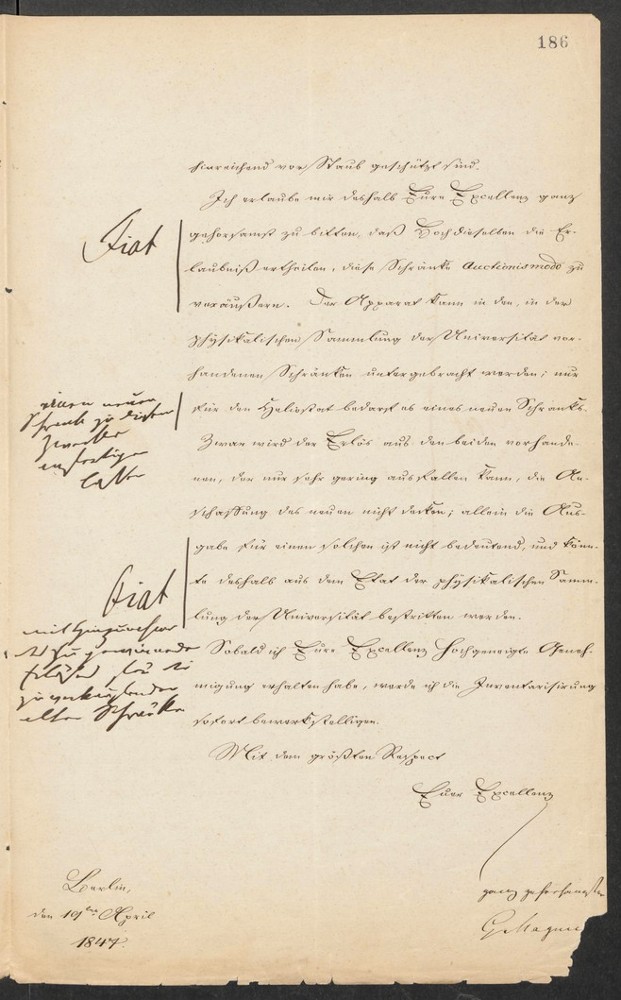 186
hinreichend vor Staub geschützt sind.
Ich erlaube mir deshalb Eure Excellenz ganz
gehorsamst zu bitten, daß Hochdieselben die Er-
laubniß ertheilen, diese Schränke Auctionis modo zu
veräußern. Der Apparat kann in den, in der
physikalischen Sammlung der Universität vor-
handenen Schränken untergebracht werden; nur
für den Heliostat bedarf es eines neuen Schranks.
Zwar wird der Erlös aus den beiden vorhande-
nen, der nur sehr gering ausfallen kann, die An-
schaffung des neuen nicht decken; allein die Aus-
gabe für einen solchen ist nicht bedeutend, und könn-
te deshalb aus dem Etat der physikalischen Samm-
lung der Universität bestritten werden.
Sobald ich Eure Excellenz hochgeneigte Geneh-
migung erhalten habe, werde ich die Inventarisirung
sofort bewerkstelligen.
Mit dem größten Respect
Euer Excellenz
ganz gehorsamster
G. Magnus
Berlin,
den 19ten April
1847.
Fiat
einen neuen
Schrank zu diesem
Zwecke
anfertigen
lassen
Fiat
mit
zu
alten Schränke